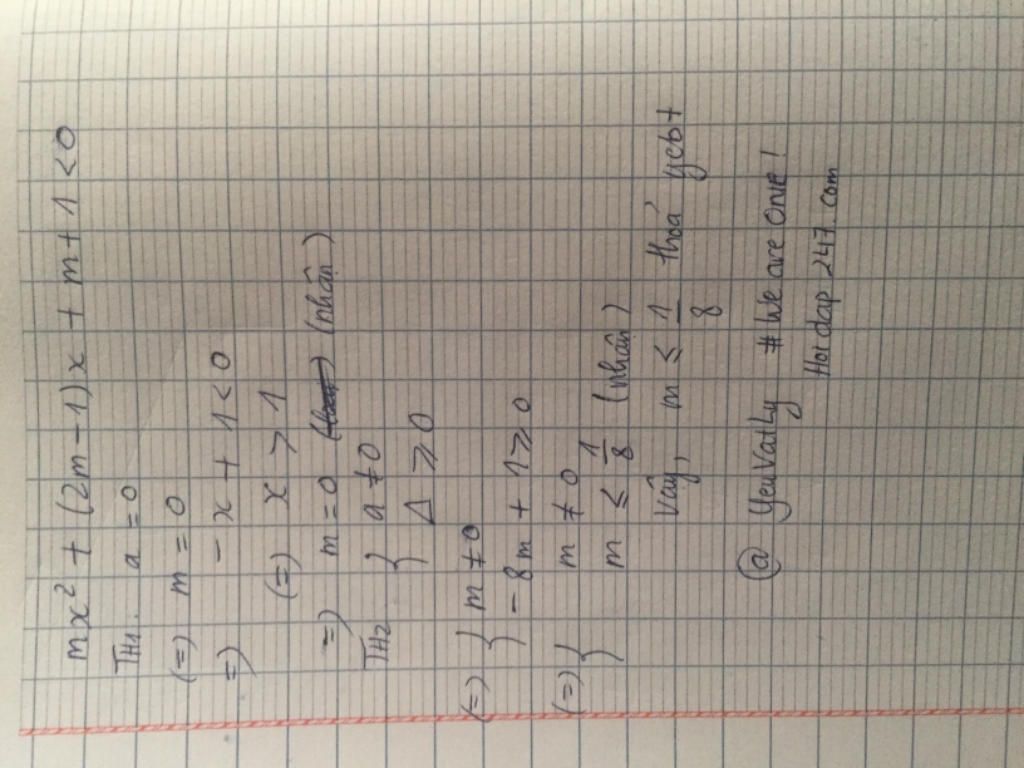 mx² + (2m - 1)x + m + 1 < 0
TH1: a = 0
(=) m = 0
=) - x + 1 < 0
(=) x > 1
=) m = 0 (nhân)
TH2 { a ≠ 0
Δ ⩾ 0
(=) { m ≠ 0
- 8m + 1 ⩾ 0
(=) { m ≠ 0
m ≤ 1/8 (nhân)
Vậy, m ≤ 1/8 thoả ycbt
@ YeuVatLy # We are one!
Hoidap 247. com